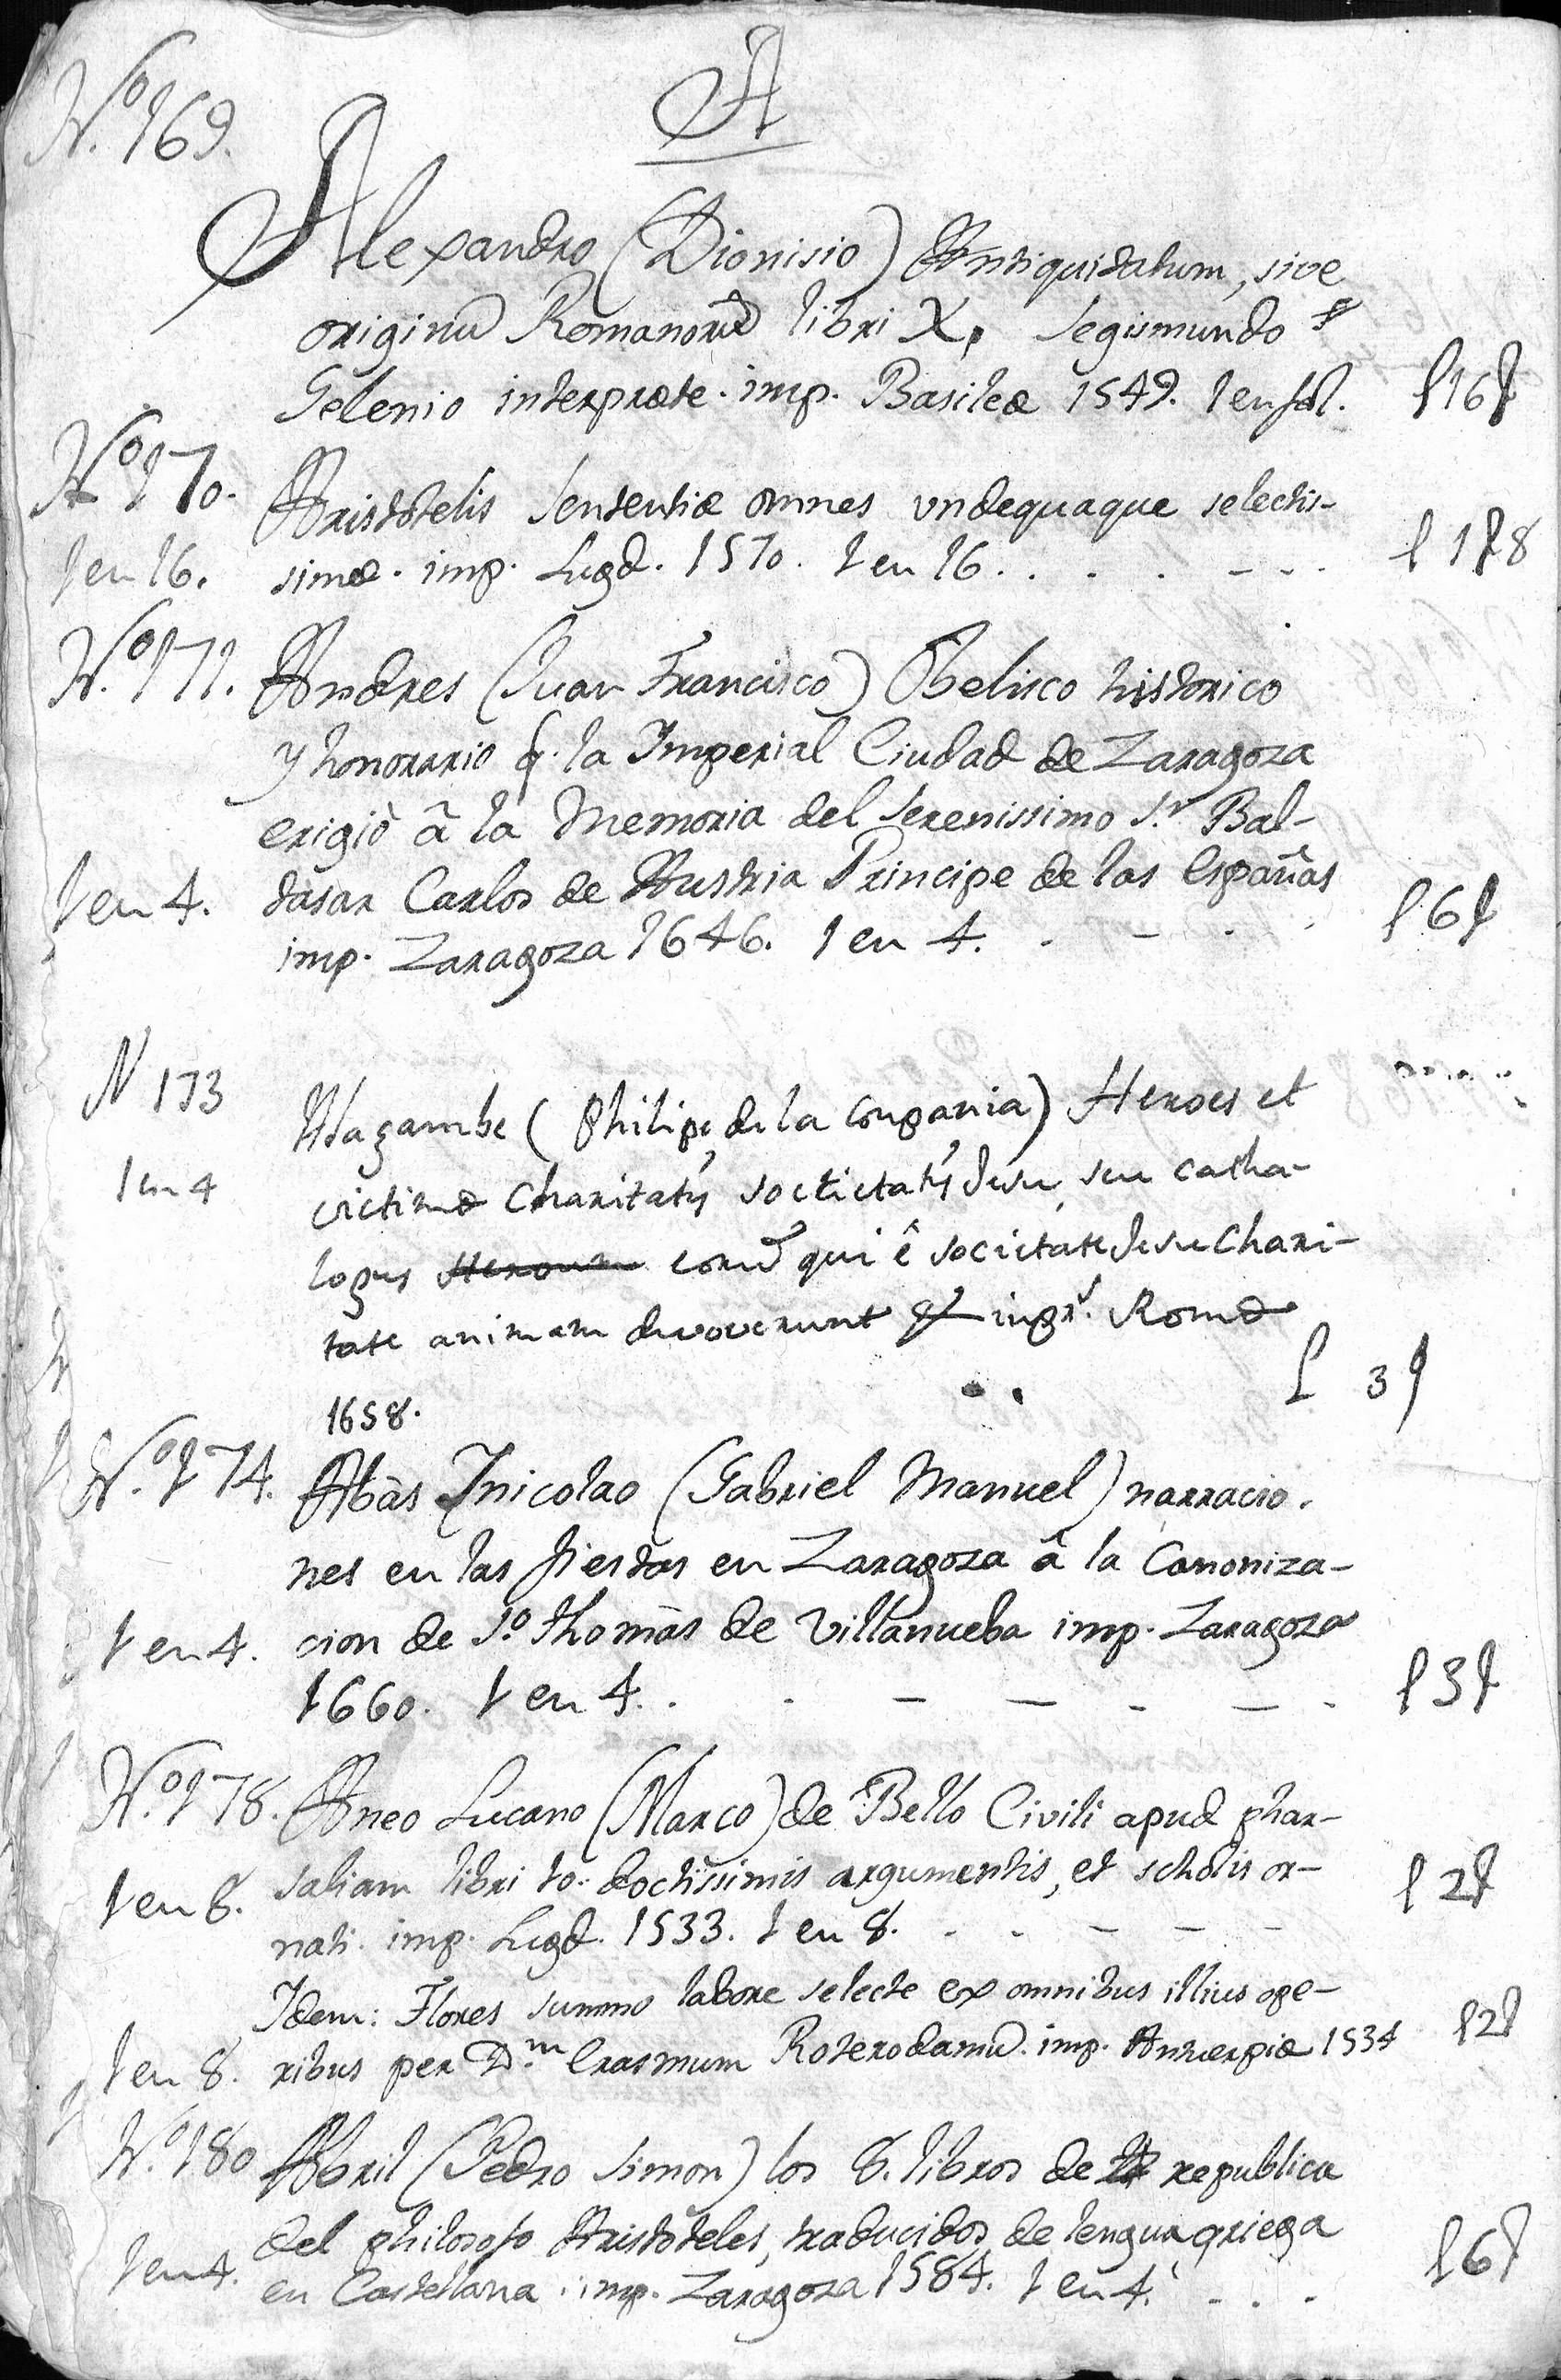 A
N.º 169.
Alexandro (Dionisio) Antiquitatum, sive
originũ Romanorũ libri X, Segismundo
Gelenio interpræte. imp. Basileæ 1549. 1 en fol. l 16 s
N.º 170. Aristotelis Sententiæ omnes undequaque selectis-
1 en 16. simæ. imp. Lugd. 1570. 1 en 16. . . . - - . l 1 s 8
N.º 171. Andres (Juan Francisco) Obelisco historico
y honorario q. la Imperial Ciudad de Zaragoza
erigiò â la Memoria del Serenissimo S.r Bal-
1 en 4. tasar Carlos de Austria Principe de las Españas l 6 s
imp. Zaragoza 1646. 1 en 4. . - . .
N 173 (Philipe de la Compania) Heroes et
1 en 4 victimæ Charitatis societatis Jesu, seu catha-
logus Heroum eorũ qui ê societate Jesu Chari-
tate animam devoverunt impr. Romæ
1658. . . l 3 s
N.º 174. Abàs y nicolao (Gabriel Manuel) narracio-
nes en las fiestas en Zaragoza â la Canoniza-
1 en 4. cion de S.º thomàs de Villanueba imp. Zaragoza
1660. 1 en 4. . . - - - - . l 3 s
N.º 178. Aneo Lucano (Marco) de Bello Civili apud phar-
1 en 8. saliam libri 10. doctissimis argumentis, et scholis or- l 2 s
nati. imp. Lugd. 1533. 1 en 8. . . - - -
Idem: Flores summo labore selecte ex omnibus illius ope-
1 en 8. ribus per D.m Erasmum Roterodamũ. imp. Antuerpiæ 1534 l 2 s
N.º 180 Abril (Pedro Simon) los 8. libros de republica
del philosofo Aristoteles, traducidos de lengua griega
1 en 4. en Castellana. imp. Zaragoza 1584. 1 en 4. - . . l 6 s